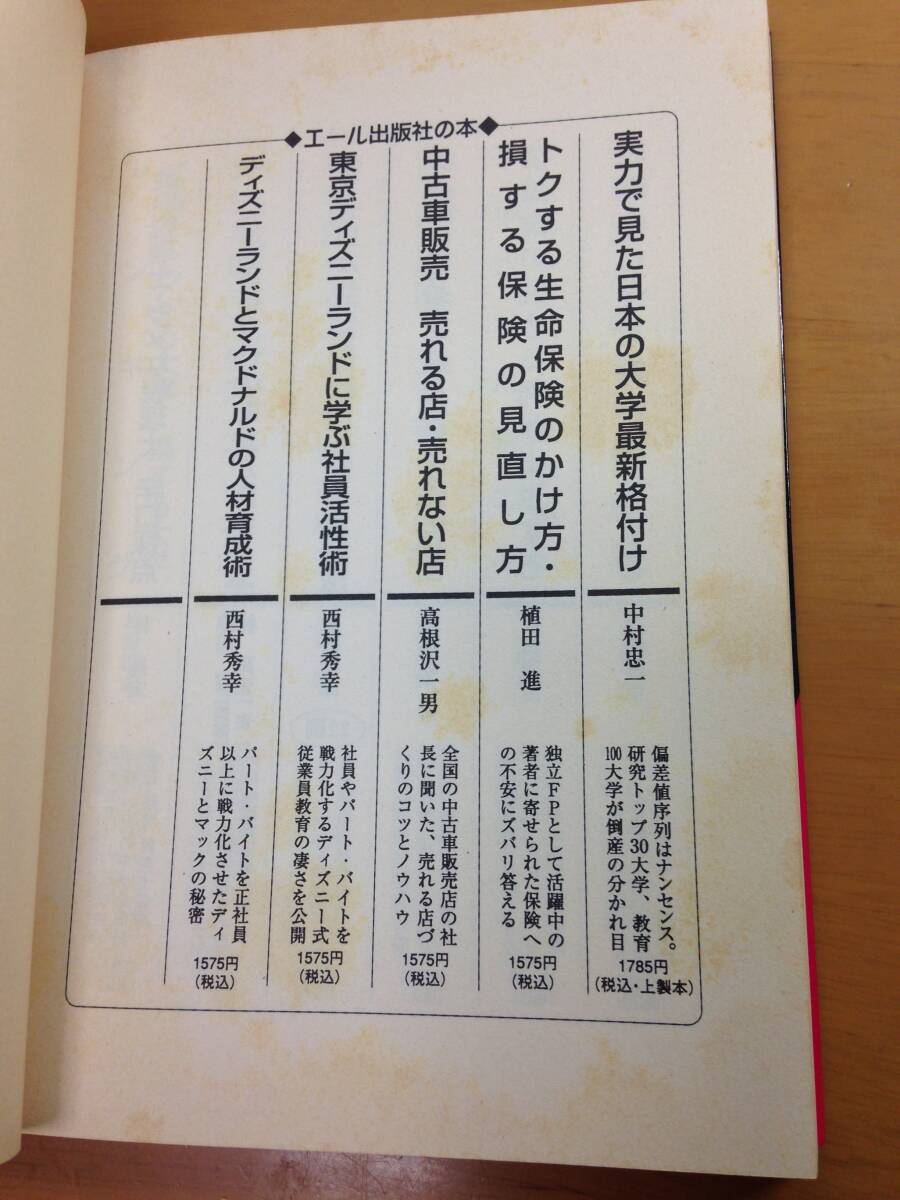 ◆エール出版社の本◆
実力で見た日本の大学最新格付け
中村忠一
偏差値序列はナンセンス。
研究トップ30大学、教育
100大学が倒産の分かれ目
1785円
(税込・上製本)
トクする生命保険のかけ方・
損する保険の見直し方
植田 進
独立FPとして活躍中の
著者に寄せられた保険へ
の不安にズバリ答える
1575円
(税込)
中古車販売 売れる店・売れない店
高根沢一男
全国の中古車販売店の社
長に聞いた、売れる店づ
くりのコツとノウハウ
1575円
(税込)
東京ディズニーランドに学ぶ社員活性術
西村秀幸
社員やパート・バイトを
戦力化するディズニー式
従業員教育の凄さを公開
1575円
(税込)
ディズニーランドとマクドナルドの人材育成術
西村秀幸
パート・バイトを正社員
以上に戦力化させたディ
ズニーとマックの秘密
1575円
(税込)